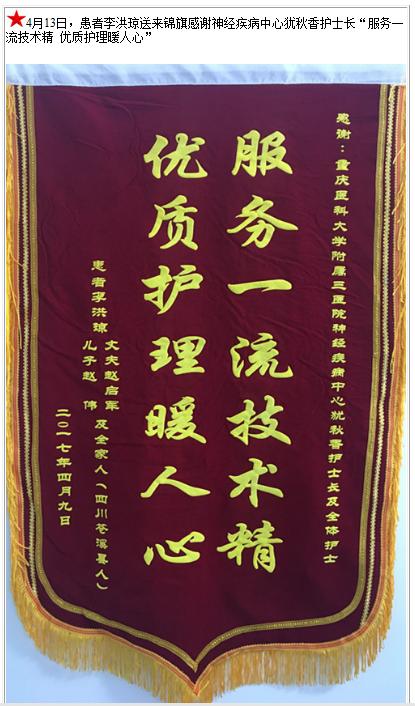 4月13日，患者李洪琼送来锦旗感谢神经疾病中心犹秋香护士长“服务一
流技术精 优质护理暖人心”
感谢：重庆医科大学附属三医院神经疾病中心犹秋香护士长及全体护士
服务一流技术精
优质护理暖人心
患者李洪琼
丈夫赵启军
儿子赵伟
及全家人（四川苍溪县人）
二〇一七年四月九日